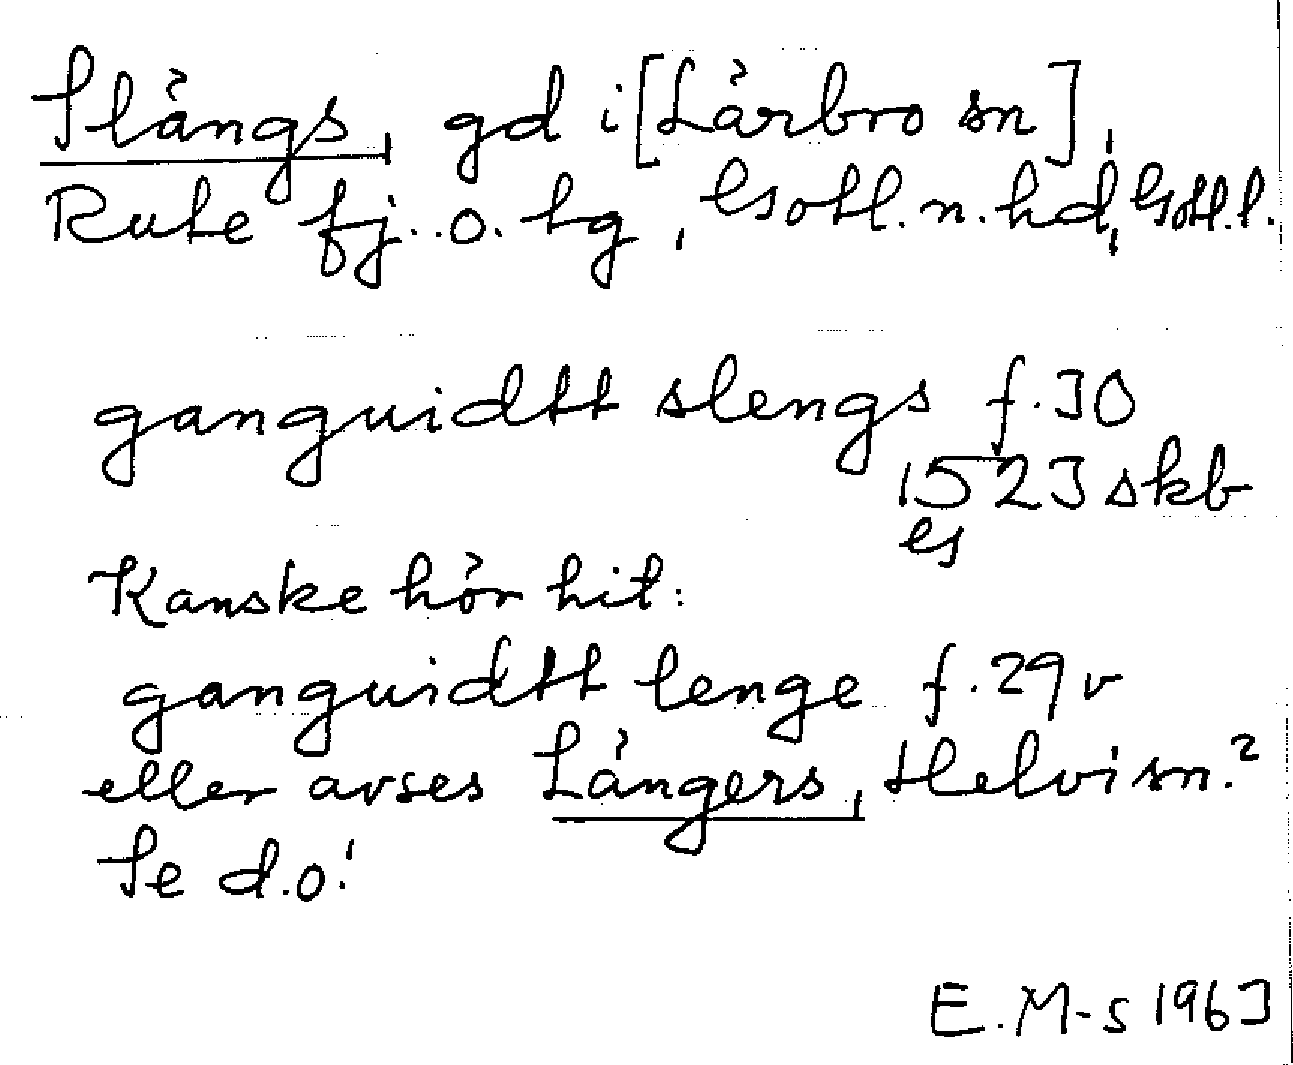 Slängs, gd i [Lärbro sn],
Rute fj. o. tg, Gotl. n. hd, Gotl. l.
ganguidtt slengs f. 30
1523 skb
G
Kanske hör hit:
ganguidtt lenge f. 29 v
eller avses Längers, Helvi sn.?
Se d.o!
E. M-s 1963